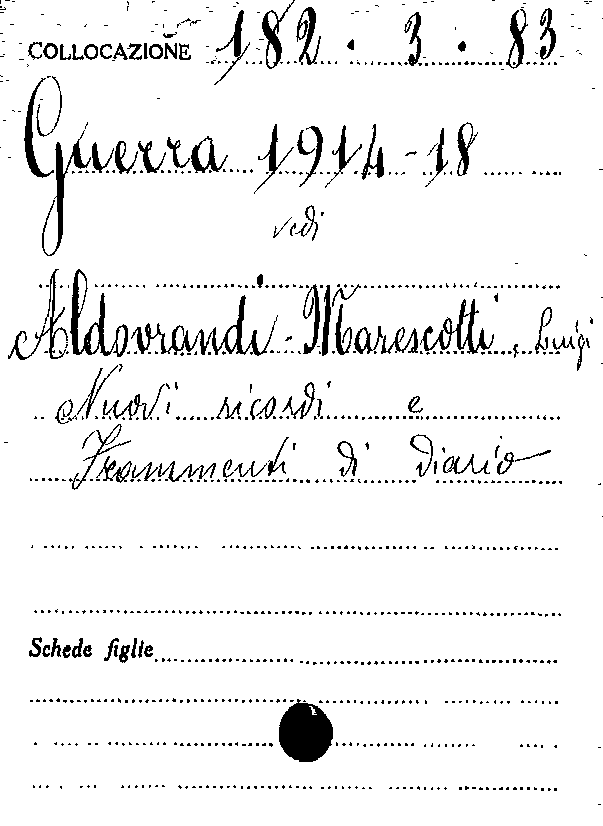 COLLOCAZIONE 182.3.83
Guerra 1914-18
vedi
Aldovrandi-Marescotti, Luigi
Nuovi ricordi e
Frammenti di diario
Schede figlie